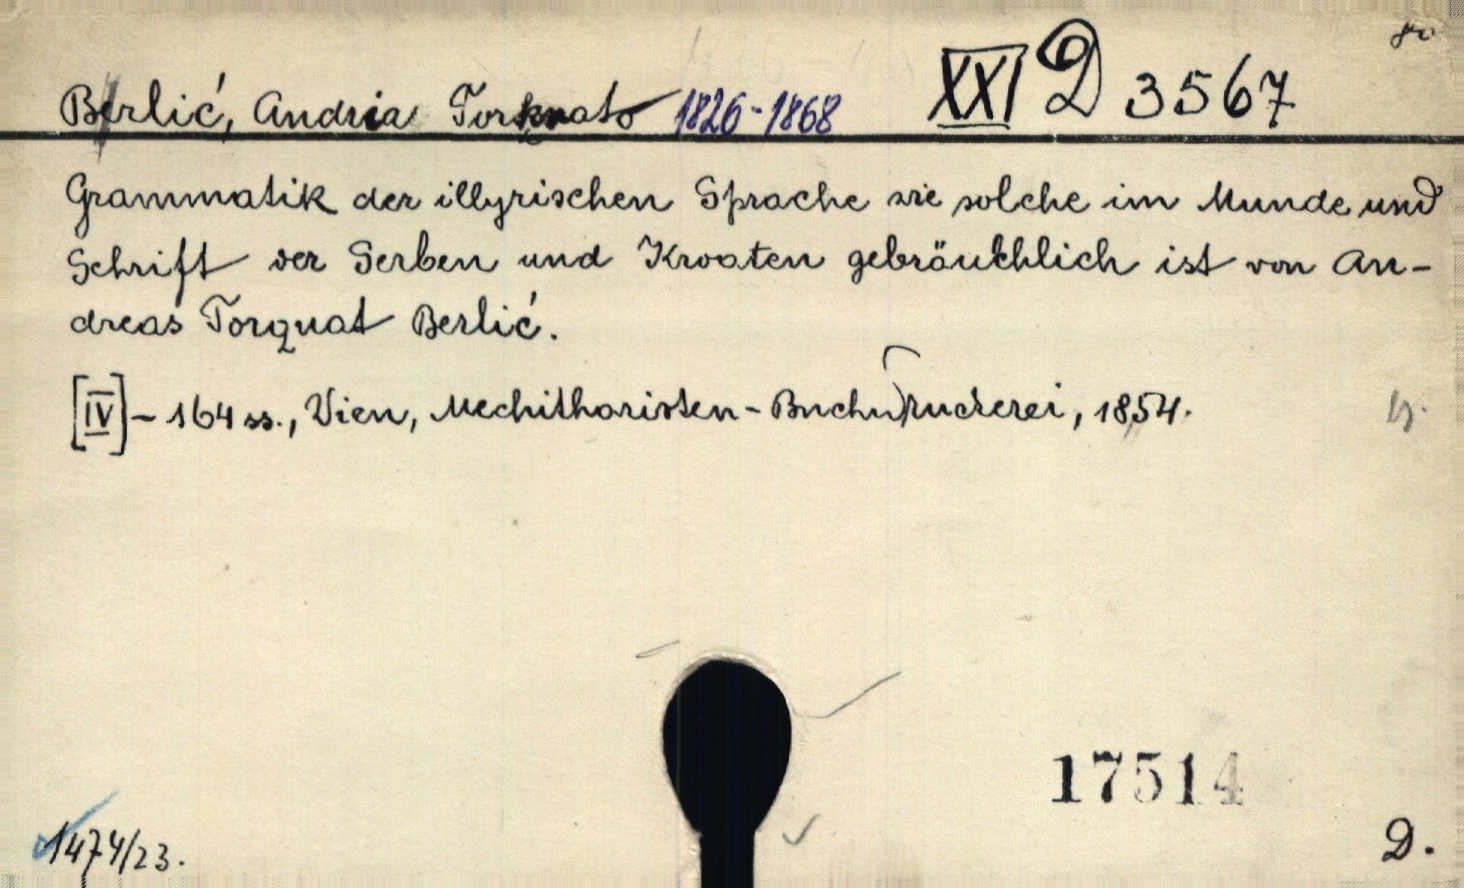 Berlić, Andria Torkvato 1826-1868 XXI D 3567 8º
Grammatik der illyrischen Sprache wie solche im Munde und
Schrift der Serben und Kroaten gebräuchlich ist von An-
dreas Torquat Berlić.
[IV] - 164 ss., Wien, Mechitharisten - Buchdruckerei, 1854.
17514
1474/23.
D.